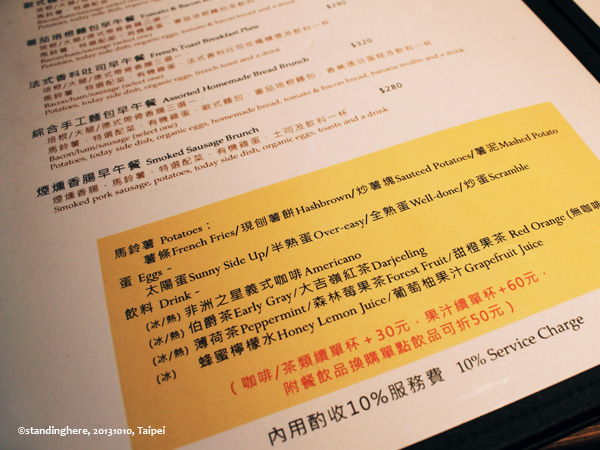 番茄培根麵包早午餐 Tomato & Bacon
培根/火腿/德式帶骨香腸三選一
Bacon/ham/sausage (select one)
Potatoes, today side dish, organic eggs, tomato & bacon bread and a drink
$290
法式香料吐司早午餐 French Toast Breakfast Plate
Bacon/ham/sausage (select one)
Potatoes, today side dish, organic eggs, french toast and a drink
$320
綜合手工麵包早午餐 Assorted Homemade Bread Brunch
培根/火腿/德式帶骨香腸三選一
Bacon/ham/sausage (select one)
Potatoes, today side dish, organic eggs, homemade bread, tomato & bacon bread, banana muffin and a drink
$280
煙燻香腸早午餐 Smoked Sausage Brunch
煙燻香腸、馬鈴薯、特選配菜、有機雞蛋、土司及飲料一杯
Smoked pork sausage, potatoes, today side dish, organic eggs, toasts and a drink
馬鈴薯 Potatoes：
薯條French Fries/現刨薯餅Hashbrown/炒薯塊Sauteed Potatoes/薯泥Mashed Potato
蛋 Eggs -
太陽蛋Sunny Side Up/半熟蛋Over-easy/全熟蛋Well-done/炒蛋Scramble
飲料 Drink -
(冰/熱) 非洲之星義式咖啡 Americano
(冰/熱) 伯爵茶Early Gray/大吉嶺紅茶Darjeeling
(冰/熱) 薄荷茶Peppermint/森林莓果茶Forest Fruit/甜橙果茶 Red Orange (無咖啡
(冰) 蜂蜜檸檬水Honey Lemon Juice/葡萄柚果汁Grapefruit Juice
( 咖啡/茶類續單杯＋30元．果汁續單杯+60元．
附餐飲品換購單點飲品可折50元 )
內用酌收10%服務費 10% Service Charge
©standinghere, 20131010, Taipei